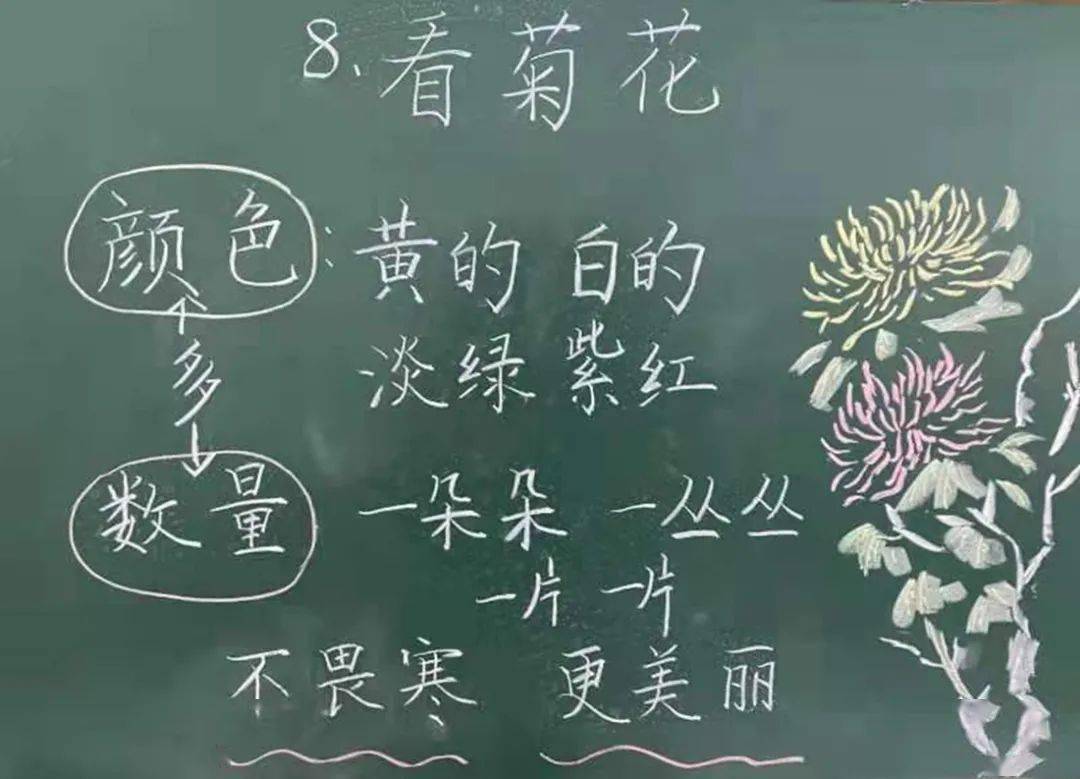 8、看菊花
颜色：黄的 白的
淡绿 紫红
多
数量 一朵朵 一丛丛
一片一片
不畏寒 更美丽